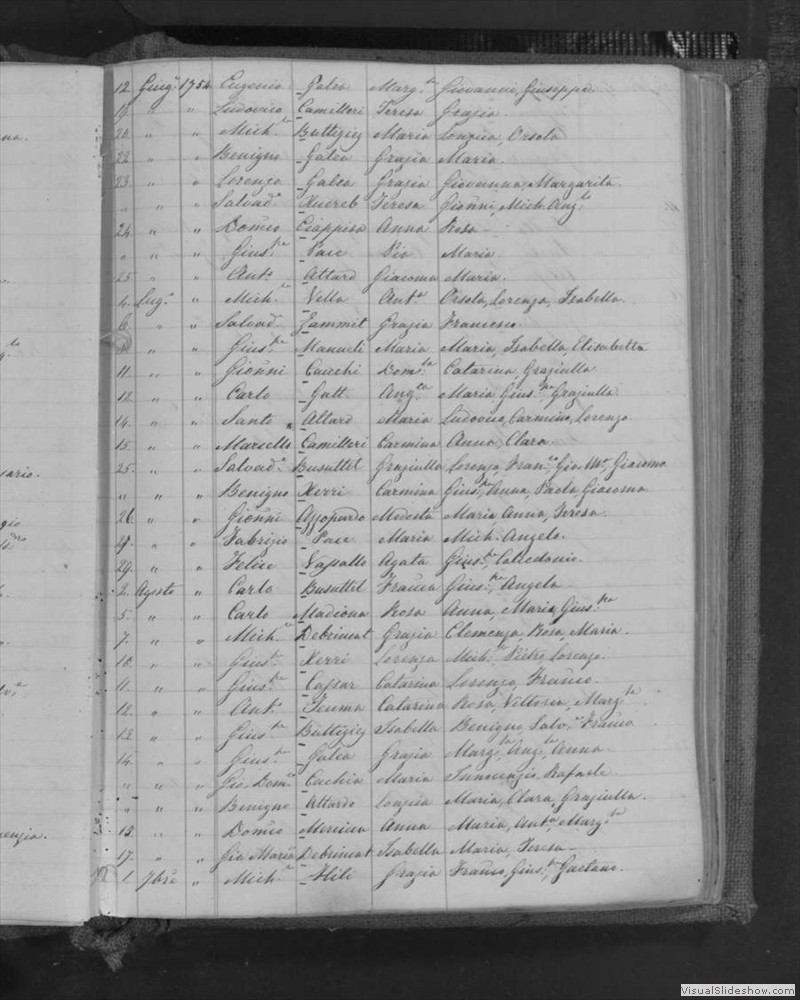 na.
sario.
gio
renzia.
12 Giugo 1754 Eugenio Galea Margta Giovanni, Giuseppe.
19 " " Ludovico Camilleri Teresa Grazia.
20 " " Miche Buttigieg Maria Orsola
22 " " Benigno Galea Grazia Maria.
23 " " Lorenzo Galea Grazia Giovanna, Margarita.
" " " Salvade Xuereb Teresa Gionni, Mich. Angto
24 " " Domco Ciappisa Anna Rosa
" " " Giuspe Pace Pia Maria
25 " " Anto Attard Giacoma Maria.
4 Lugo " Miche Vella Anta Orsola, Lorenza, Isabella.
6 " " Salvad. Zammit Grazia Francesco
" " Giuspe Manueli Maria Maria, Isabella, Elisabetta
11 " " Gionni Cauchi Domca Catarina, Graziulla
12 " " Carlo Gatt Angta Maria, Giuspa, Graziulla
14 " " Santo Attard Maria Ludovico, Carmina, Lorenzo
15 " " Marcello Camilleri Carmina Anna, Clara
25 " " Salvade Busuttil Graziulla Lorenzo, Franco, Gio Ma, Giacomo
" " " Benigno Xerri Carmina Giuspe, Anna, Paola, Giacoma
26 " " Gionni Azzopardo Modesta Maria Anna, Teresa.
" " Fabrizio Pace Maria Mich. Angelo.
29 " " Felice Vassallo Agata Giuspe, Calcedonio.
2 Agosto " Carlo Busuttil Franca Giuspe, Angela
5 " " Carlo Madiona Rosa Anna, Maria, Giuspa
7 " " Miche Debrincat Grazia Clemenza, Rosa, Maria.
10 " " Giuspe Xerri Lorenza Miche, Pietro, Lorenzo.
11 " " Giuspe Cassar Catarina Lorenzo, Franco.
12 " " Anto Teuma Catarina Rosa, Vittoria, Margta
13 " " Giuspe Buttigieg Isabella Benigno, Salve, Franco
14 " " Giuspe Galea Grazia Margta, Angta, Anna
" " " Gio Domco Cachia Maria Innocenzio, Rafaele.
" " " Benigno Attardo Maria, Clara, Graziulla.
15 " " Domco Mercieca Anna Maria, Anta, Margta
17 " " Gio Maria Debrincat Isabella Maria, Teresa
1 7bre " Miche Hili Grazia Franco, Giuspe, Gaetano.
VisualSlideshow.com